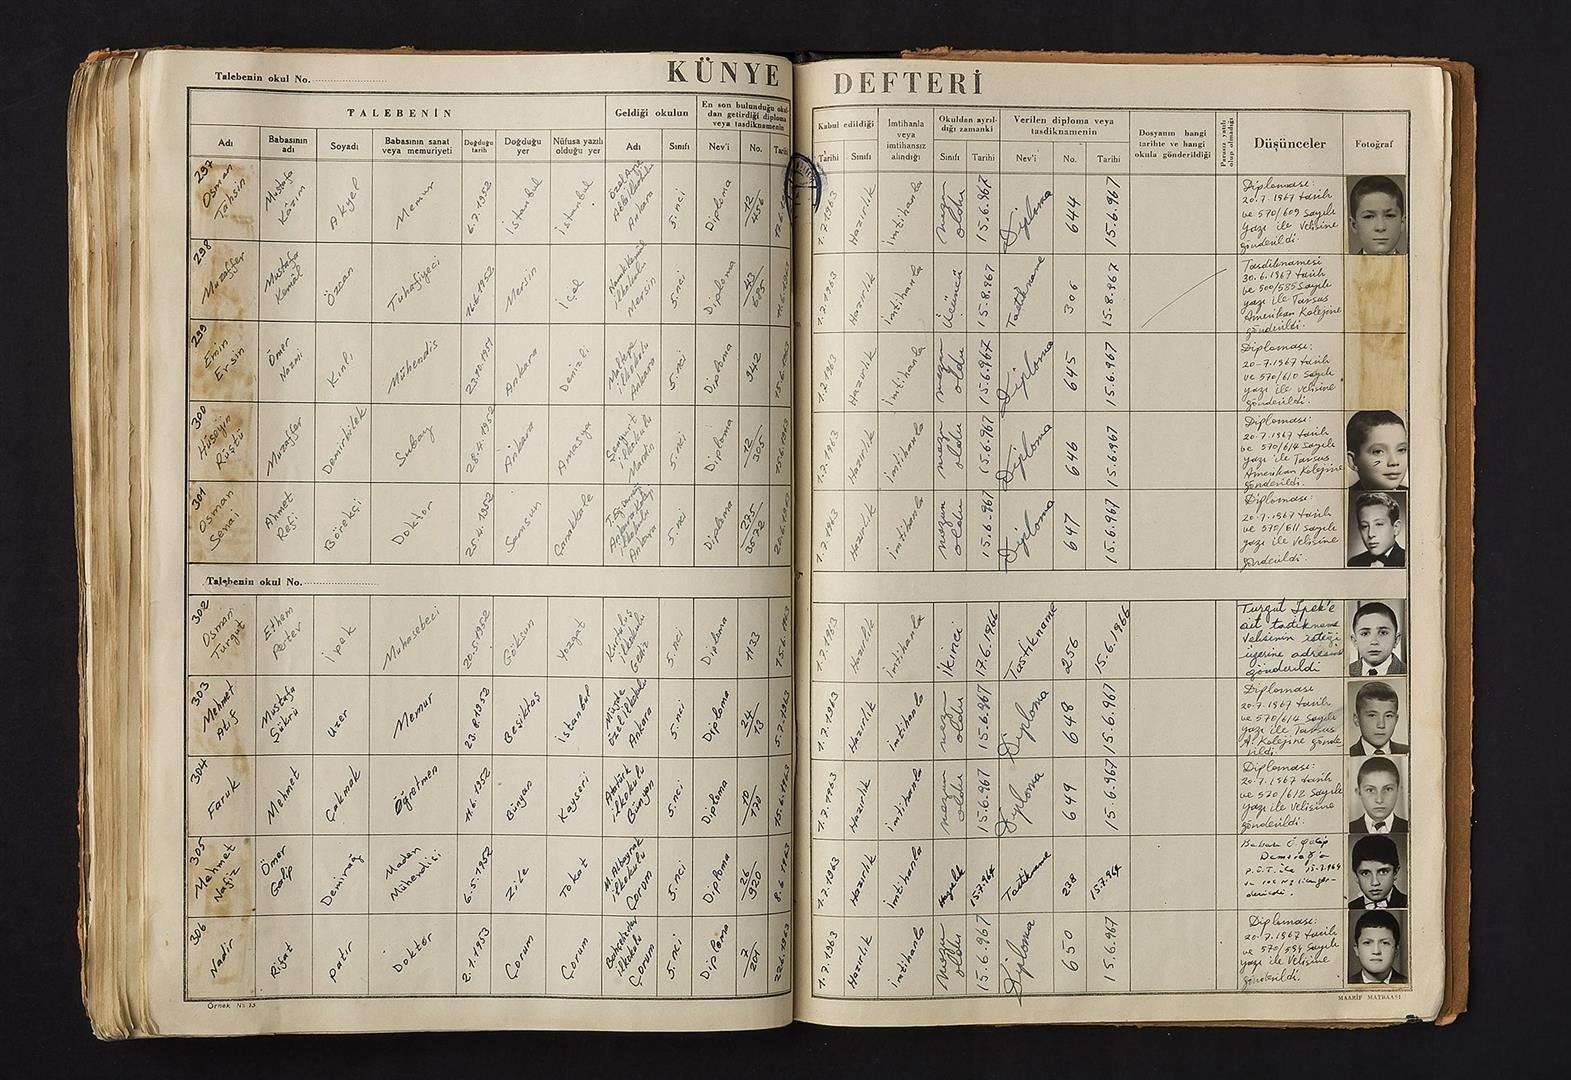 Talebenin okul No.
KÜNYE DEFTERİ
TALEBENİN
Geldiği okulun
En son bulunduğu okul-
dan getirdiği diploma
veya tasdiknamenin
Adı
Babasının
adı
Soyadı
Babasının sanat
veya memuriyeti
Doğduğu
tarih
Doğduğu
yer
Nüfusa yazılı
olduğu yer
Adı
Sınıfı
Nev'i
No.
Tarihi
Kabul edildiği
Tarihi
Sınıfı
İmtihanla
veya
imtihansız
alındığı
Okuldan ayrıl-
dığı zamanki
Sınıfı
Tarihi
Verilen diploma veya
tasdiknamenin
Nev'i
No.
Tarihi
Dosyanın hangi
tarihte ve hangi
okula gönderildiği
Parasız yatılı
olup olmadığı
Düşünceler
Fotoğraf
297 Osman Tahsin
Mustafa Kâzım
Akyel
Memur
6.7.1952
İstanbul
İstanbul
Ankara
5.nci
Diploma
12/456
1.7.1963
Hazırlık
İmtihanla
mezun oldu
15.6.967
Diploma
644
15.6.967
Diploması:
20.7.1967 tarih
ve 570/609 sayılı
yazı ile Velisine
gönderildi.
298 Muzaffer
Mustafa Kemâl
Özcan
Tuhafiyeci
Mersin
İçel
Namık Kemâl ilkokulu Mersin
5.nci
Diploma
43/685
1.7.1963
Hazırlık
İmtihanla
Üçüncü
15.8.967
Tastikname
306
15.8.967
Tasdiknamesi
30.6.1967 tarih
ve 500/585 sayılı
yazı ile Tarsus
Amerikan Kolejine
gönderildi.
299 Emin Ersin
Ömer Nazmi
Kınlı
Mühendis
Ankara
Denizli
Maltepe ilkokulu Ankara
5.nci
Diploma
942
1.7.1963
Hazırlık
İmtihanla
mezun oldu
15.6.967
Diploma
645
15.6.967
Diploması:
20-7.1967 tarih
ve 570/610 sayılı
yazı ile velisine
gönderildi.
300 Hüseyin Rüştü
Muzaffer
Demirbilek
Subay
Ankara
Amasya
ilkokulu Mardin
5.nci
Diploma
12/305
1.7.1963
Hazırlık
İmtihanla
mezun oldu
15.6.967
Diploma
646
15.6.967
Diploması:
20.7.1967 tarih
ve 570/614 sayılı
yazı ile Tarsus
Amerikan Kolejine
gönderildi.
301 Osman Senai
Ahmet Refi
Börekçi
Doktor
25.4.1952
Samsun
Çanakkale
Ankara
5.nci
Diploma
275/3572
1.7.1963
Hazırlık
İmtihanla
mezun oldu
15.6.967
Diploma
647
15.6.967
Diploması:
20.7.1967 tarih
ve 570/611 sayılı
yazı ile Velisine
gönderildi.
Talebenin okul No.
302 Osman Turgut
Ethem Pertev
İpek
Muhasebeci
20.5.1952
Göksun
Yozgat
Kurtuluş ilkokulu Gediz
5.nci
Diploma
1133
15.6.1963
1.7.1963
Hazırlık
İmtihanla
İkinci
17.6.1966
Tastikname
256
15.6.1966
Turgut İpek'e
ait tastikname
Velisinin isteği
üzerine adresine
gönderildi
303 Mehmet Atıf
Mustafa Şükrü
Uzer
Memur
23.8.1952
Beşiktaş
İstanbul
özel ilkokulu Ankara
5.nci
Diploma
24/13
5.7.1963
1.7.1963
Hazırlık
İmtihanla
mezun oldu
15.6.967
Diploma
648
15.6.967
Diploması
20.7.1967 tarih
ve 570/614 sayılı
yazı ile Tarsus
A. Kolejine gönde
rildi.
304 Faruk
Mehmet
Çakmak
Öğretmen
11.6.1952
Bünyan
Kayseri
Atatürk ilkokulu Bünyan
5.nci
Diploma
15.6.1963
1.7.1963
Hazırlık
İmtihanla
mezun oldu
15.6.967
Diploma
649
15.6.967
Diploması:
20.7.1967 tarih
ve 570/612 sayılı
yazı ile Velisine
gönderildi.
305 Mehmet Nafiz
Ömer Galip
Demirağ
Maden Mühendisi
6.5.1952
Zile
Tokat
M. Albayrak ilkokulu Çorum
5.nci
Diploma
26/920
8.6.1963
1.7.1963
Hazırlık
İmtihanla
15.7.964
Tastikname
238
15.7.964
Babası Ö Galip
Demirağ'a
306 Nadir
Rifat
Patır
Doktor
2.1.1953
Çorum
Çorum
Bahçelievler ilkokulu Çorum
5.nci
Diploma
7/201
22.6.1963
1.7.1963
Hazırlık
İmtihanla
mezun oldu
15.6.967
Diploma
650
15.6.967
Diploması:
20.7.1967 tarih
ve 570/594 sayılı
yazı ile Velisine
gönderildi.
Örnek No 13
MAARİF MATBAASI